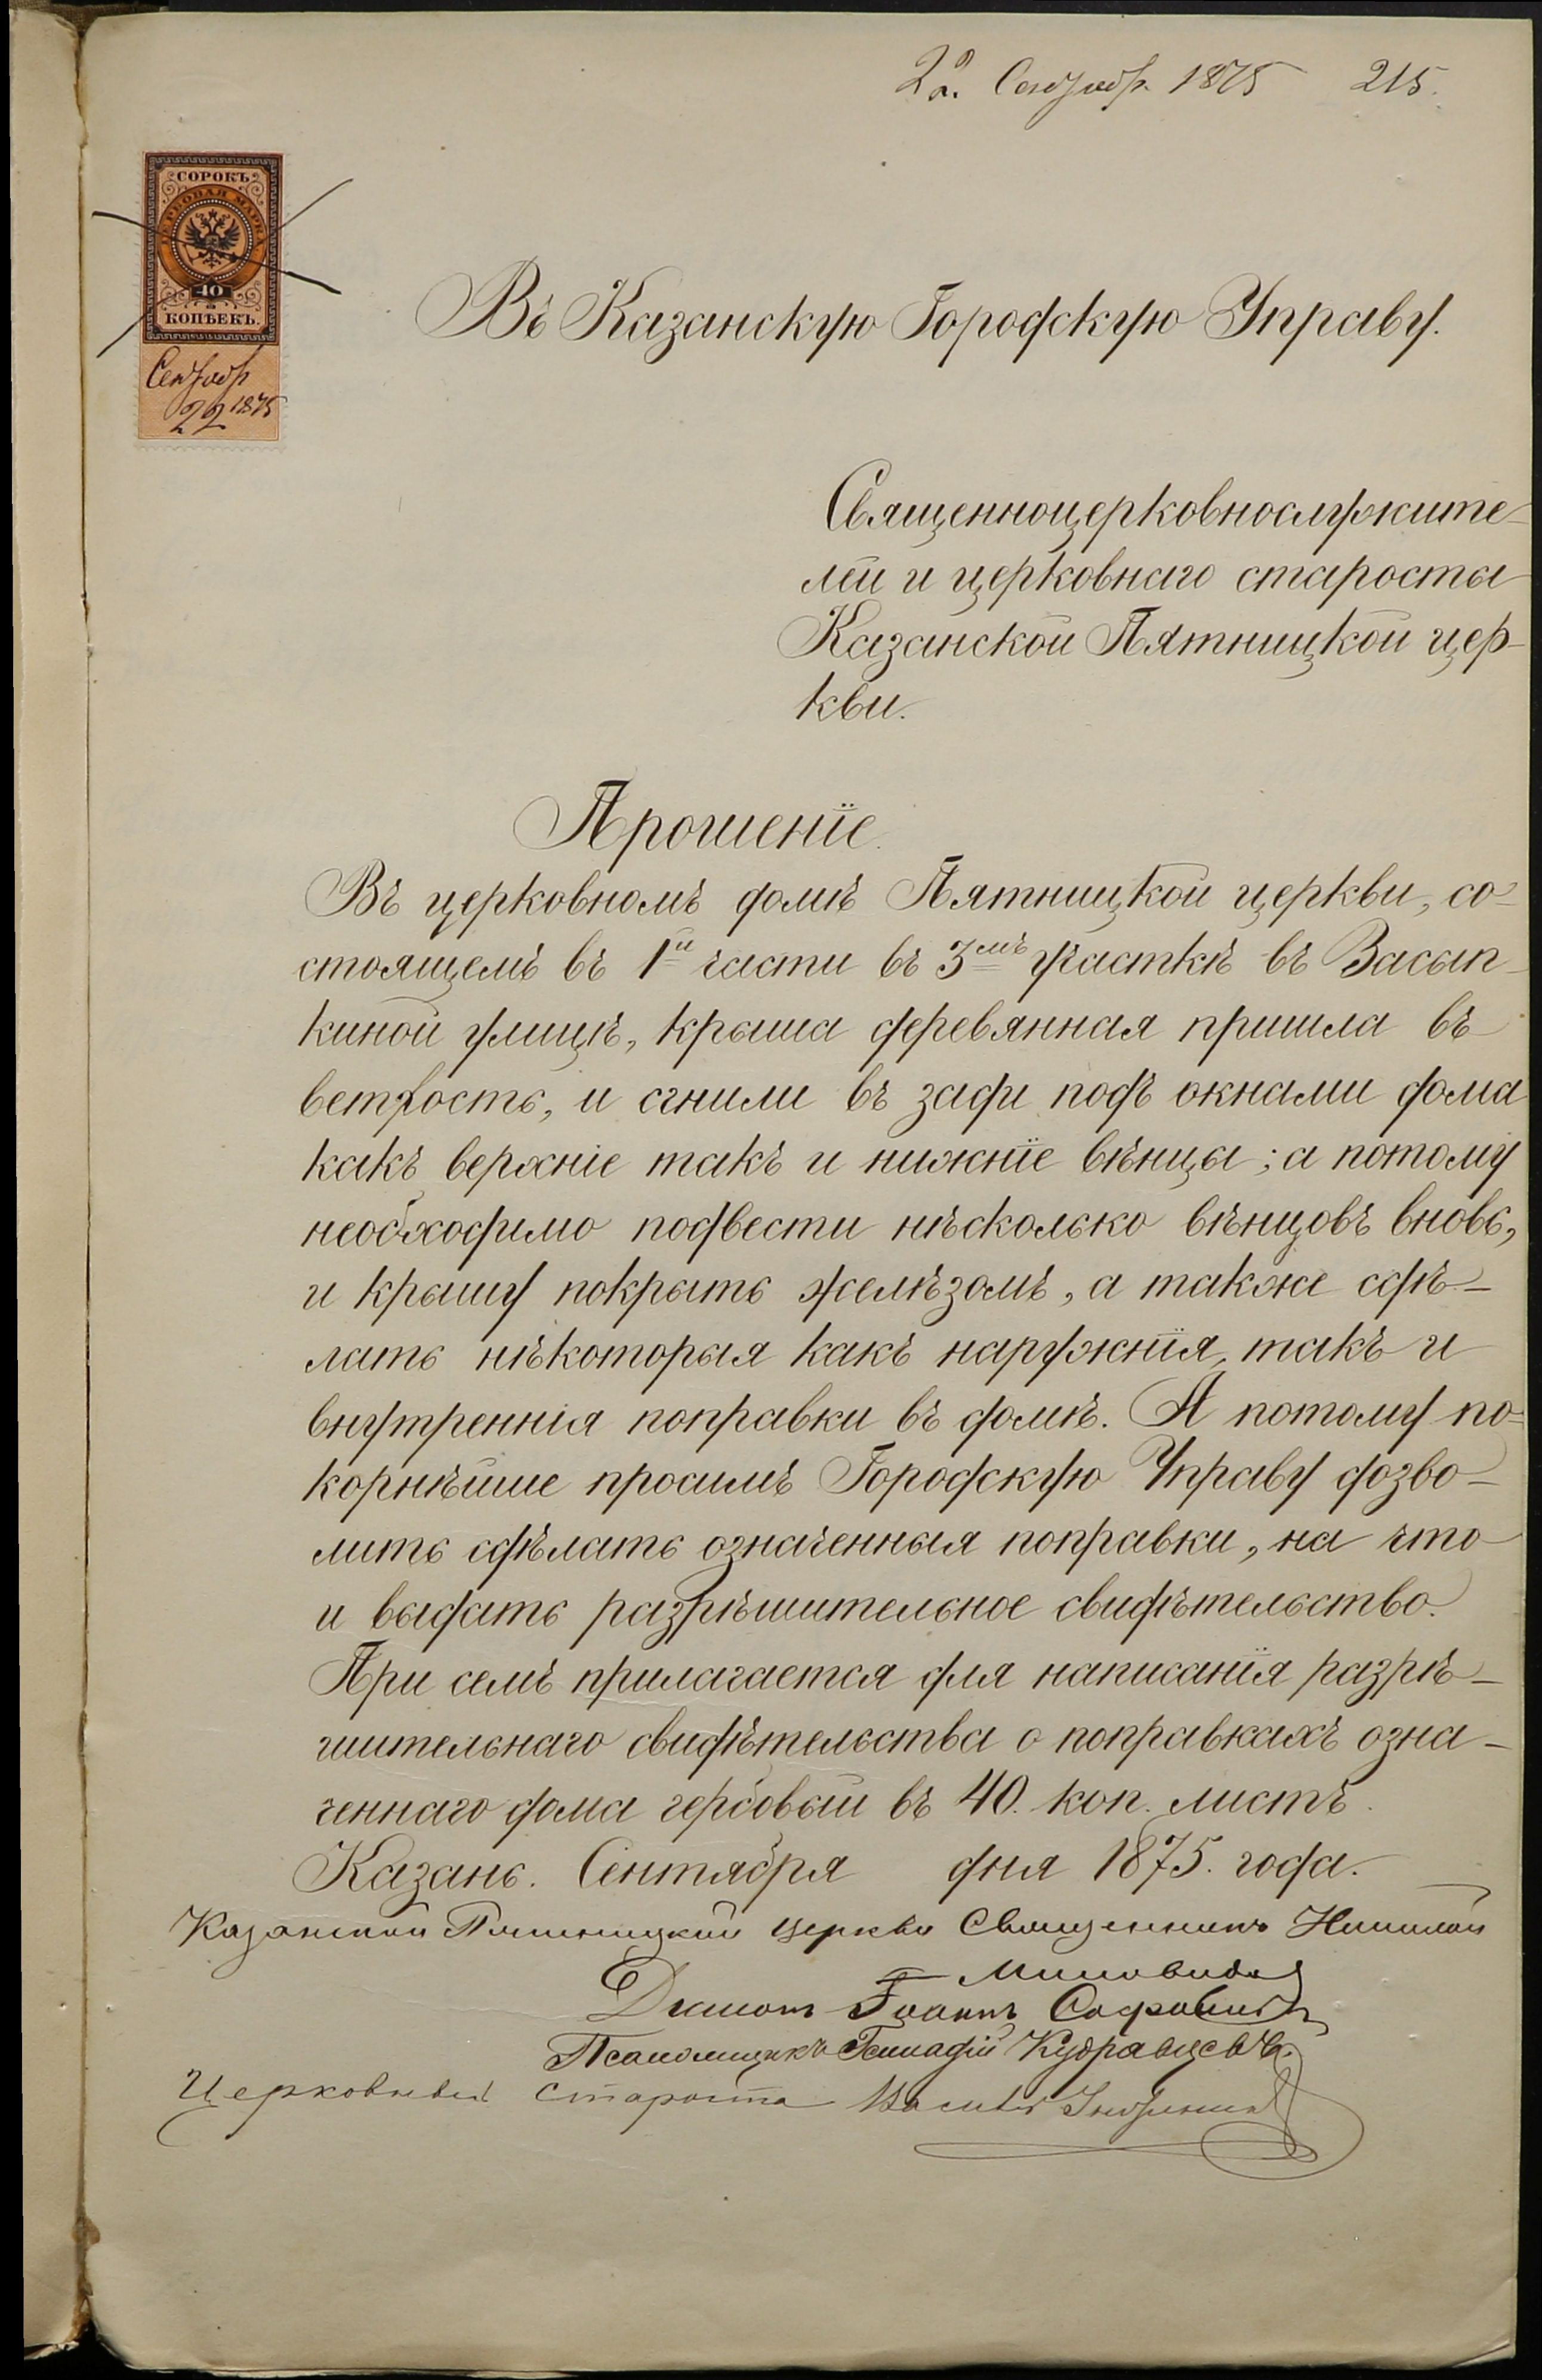 22. Сентябр. 1875 215.
СОРОКЪ
ГЕРБОВАЯ МАРКА
40
КОПѢЕКЪ.
Сентябр
22 1875
Въ Казанскую Городскую Управу.
Священноцерковнослужите-
лей и церковнаго старосты
Казанской Пятницкой цер-
кви.
Прошеніе.
Въ церковномъ домѣ Пятницкой церкви, со-
стоящемъ въ 1й части въ 3мъ участкѣ въ Засып-
киной улицѣ, крыша деревянная пришла въ
ветхость, и сгнили въ зади подъ окнами дома
какъ верхніе такъ и нижніе вѣнцы; а потому
необходимо подвести нѣсколько вѣнцовъ вновь,
и крышу покрыть желѣзомъ, а также сдѣ-
лать нѣкоторыя какъ наружнія, такъ и
внутреннія поправки въ домѣ. А потому по-
корнѣйше просимъ Городскую Управу дозво-
лить сдѣлать означенныя поправки, на что
и выдать разрѣшительное свидѣтельство.
При семъ прилагается для написанія разрѣ-
шительнаго свидѣтельства о поправкахъ озна-
ченнаго дома гербовый въ 40. коп. листъ.
Казань. Сентября дня 1875. года.
Казанской Пятницкой церкви Священникъ Николай
Миловидов
Діаконъ Іоаннъ Сафоновъ
Псаломщикъ Геннадій Кудрявцевъ.
Церковный староста Василий